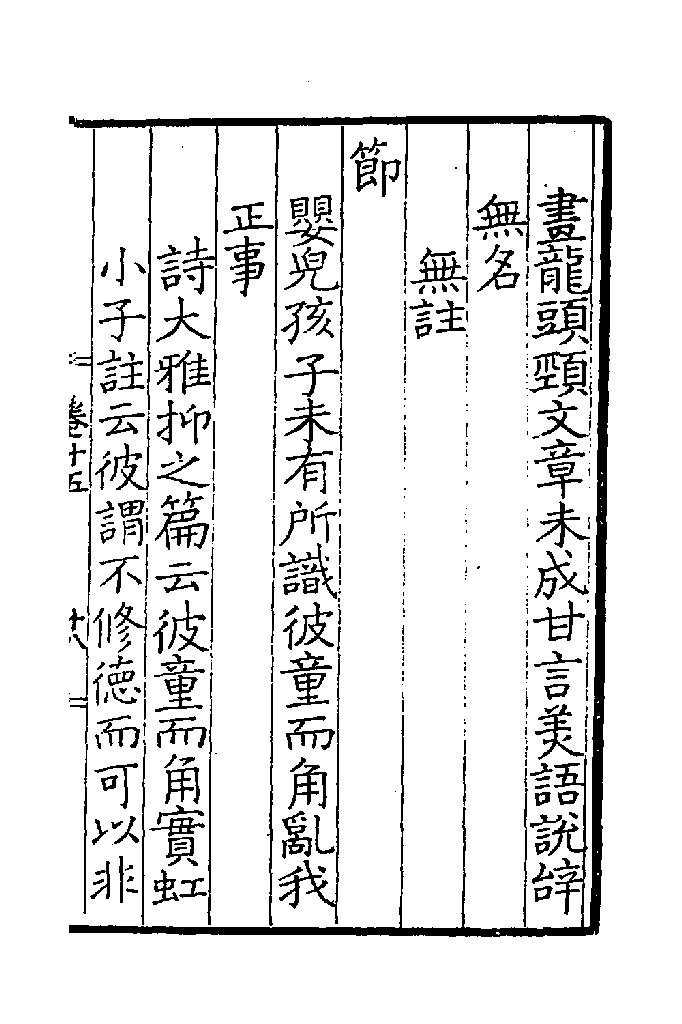 畫龍頭頸文章未成甘言美語說辭
無名
無註
節
嬰兒孩子未有所識彼童而角亂我
正事
詩大雅抑之篇云彼童而角實虹
小子註云彼謂不修德而可以非
卷十五